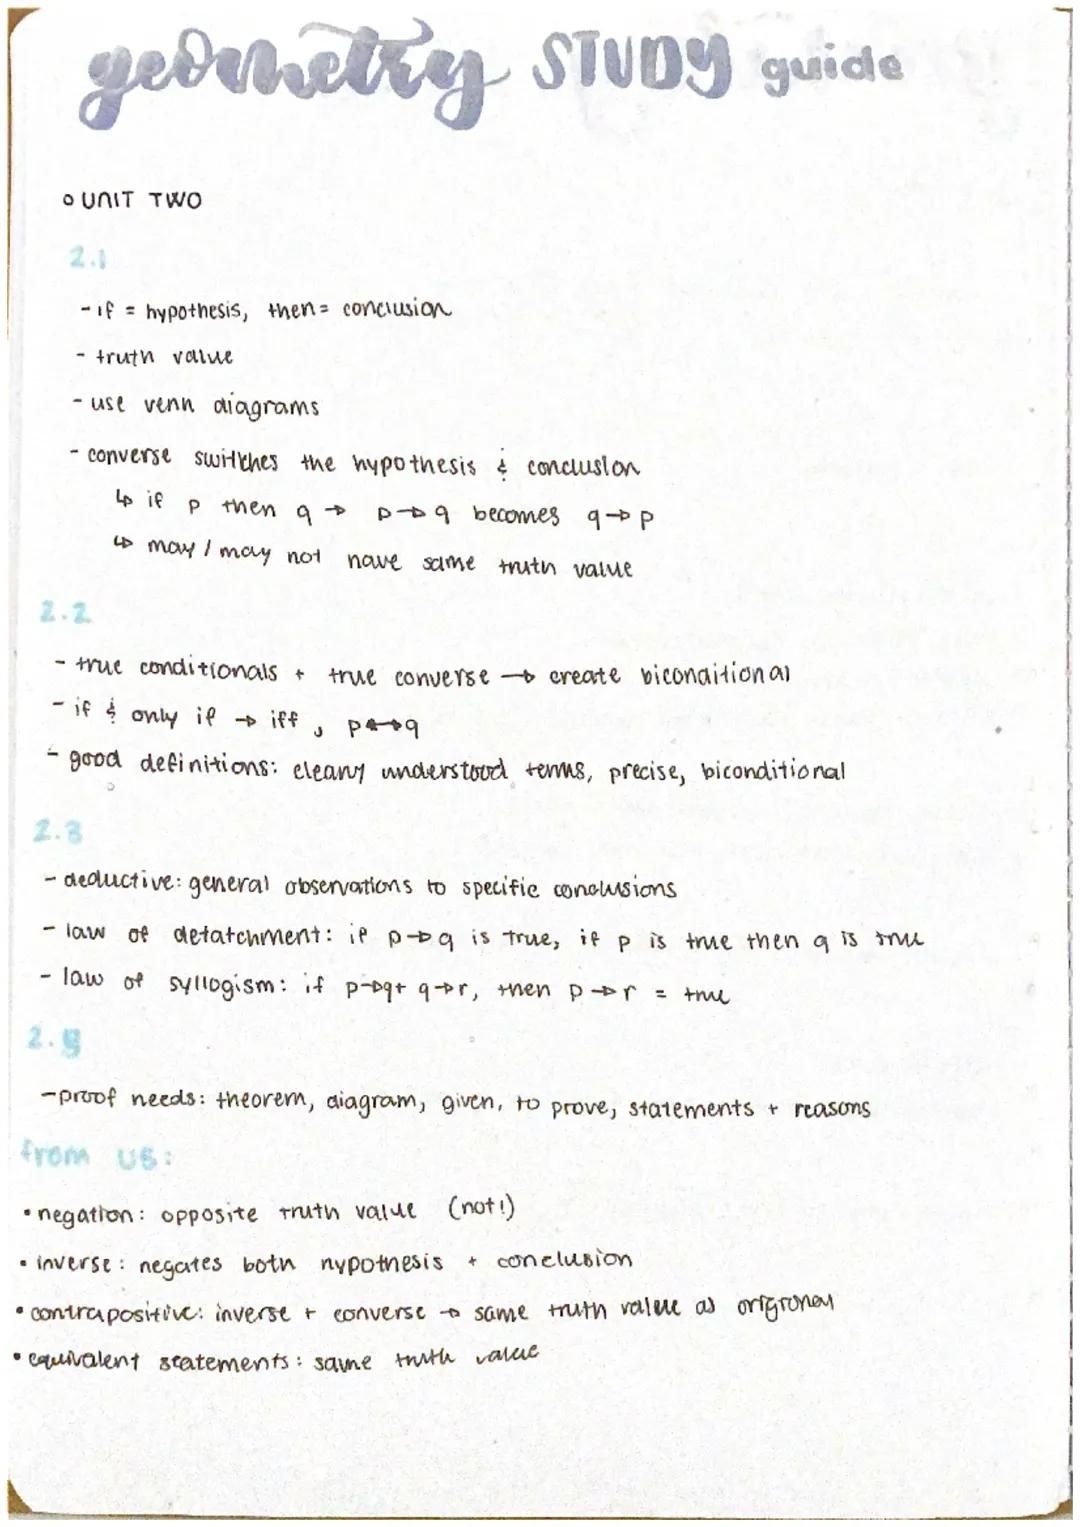 geometry STUDY guide
○ UNIT TWO
2.1
- if = hypothesis, then = conclusion
- truth value
- use venn diagrams
- converse switches the hypothesis & conclusion
↳ if p then q → p→q becomes q→p
↳ may / may not have same truth value
2.2
- true conditionals + true converse → create biconditional
- if & only if → iff, p↔q
- good definitions: clearly understood terms, precise, biconditional
2.3
- deductive: general observations to specific conclusions
- law of detatchment: if p→q is true, if p is true then q is true
- law of syllogism: if p→q + q→r, then p→r = true
-proof needs: theorem, diagram, given, to prove, statements + reasons
from U5:
• negation: opposite truth value (not!)
• inverse: negates both hypothesis + conclusion
• contrapositive: inverse + converse → same truth value as original
• equivalent statements: same truth value